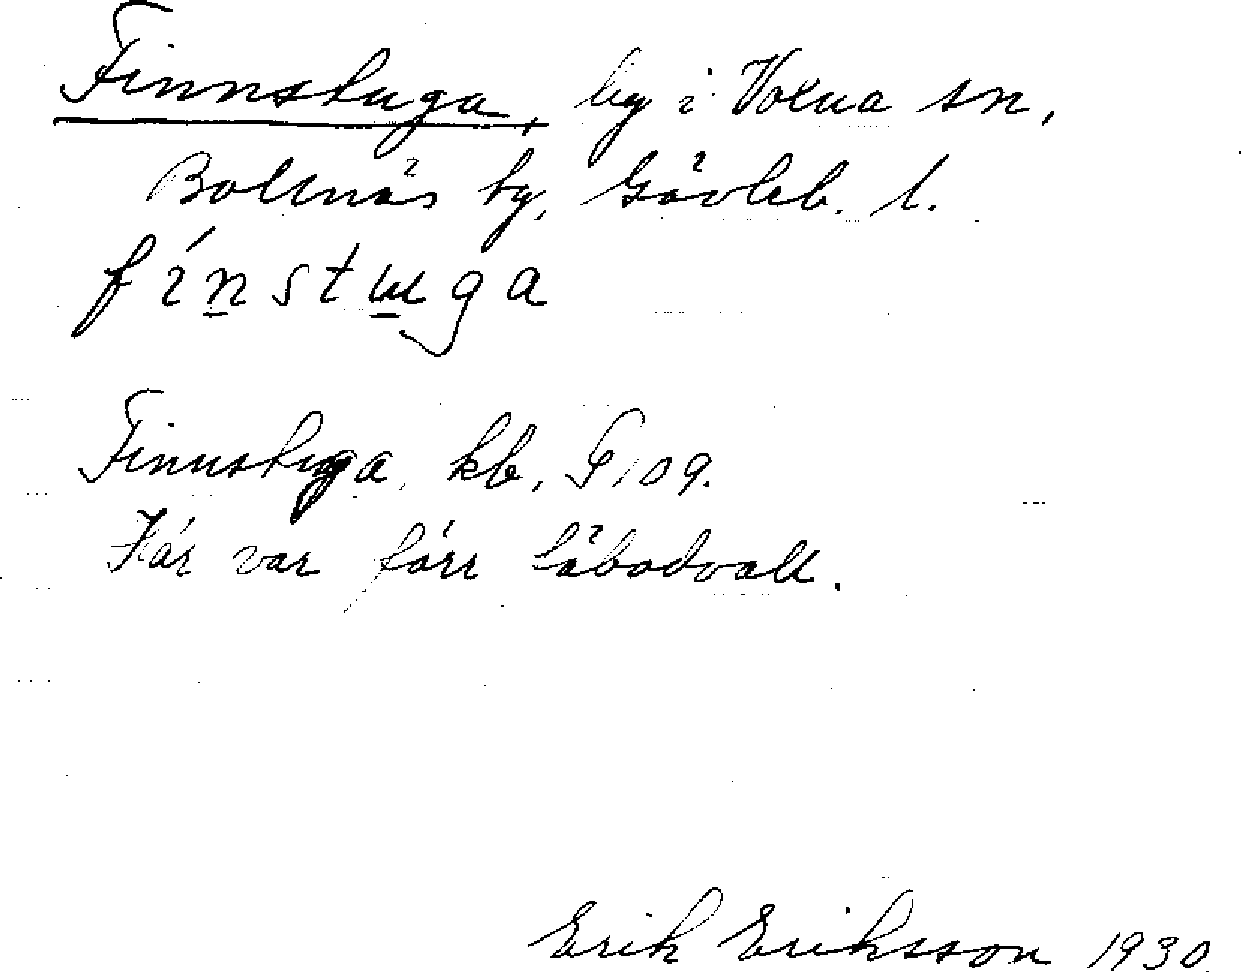 Finnstuga, by i Voxna sn,
Bollnäs tg, Gävleb. l.
fínstuga
Finnstuga, kb, G 109.
Här var förr fäbodvall.
Erik Eriksson 1930.